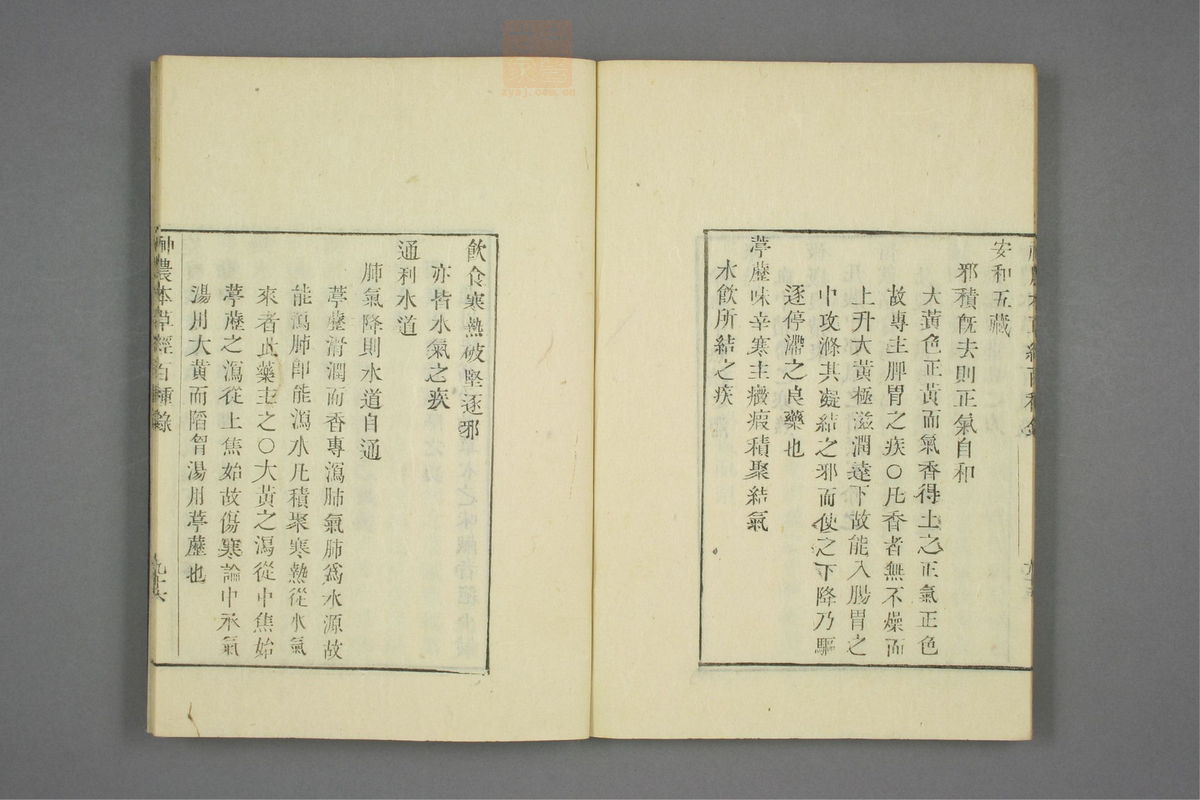 安和五藏
邪積旣去則正氣自和
大黃色正黃而氣香得土之正氣正色
故專主脾胃之疾〇凡香者無不燥而
上升大黃極滋潤達下故能入腸胃之
中攻滌其凝結之邪而使之下降乃驅
逐停滯之良藥也
葶藶味辛寒主癥瘕積聚結氣
水飲所結之疾
飮食寒熱破堅逐邪
亦皆水氣之疾
通利水道
肺氣降則水道自通
葶藶滑潤而香專瀉肺氣肺爲水源故
能瀉肺卽能瀉水凡積聚寒熱從水氣
來者此藥主之〇大黃之瀉從中焦始
葶藶之瀉從上焦始故傷寒論中承氣
湯用大黃而陷胷湯用葶藶也
神農本草經百種錄
zysj.com.cn